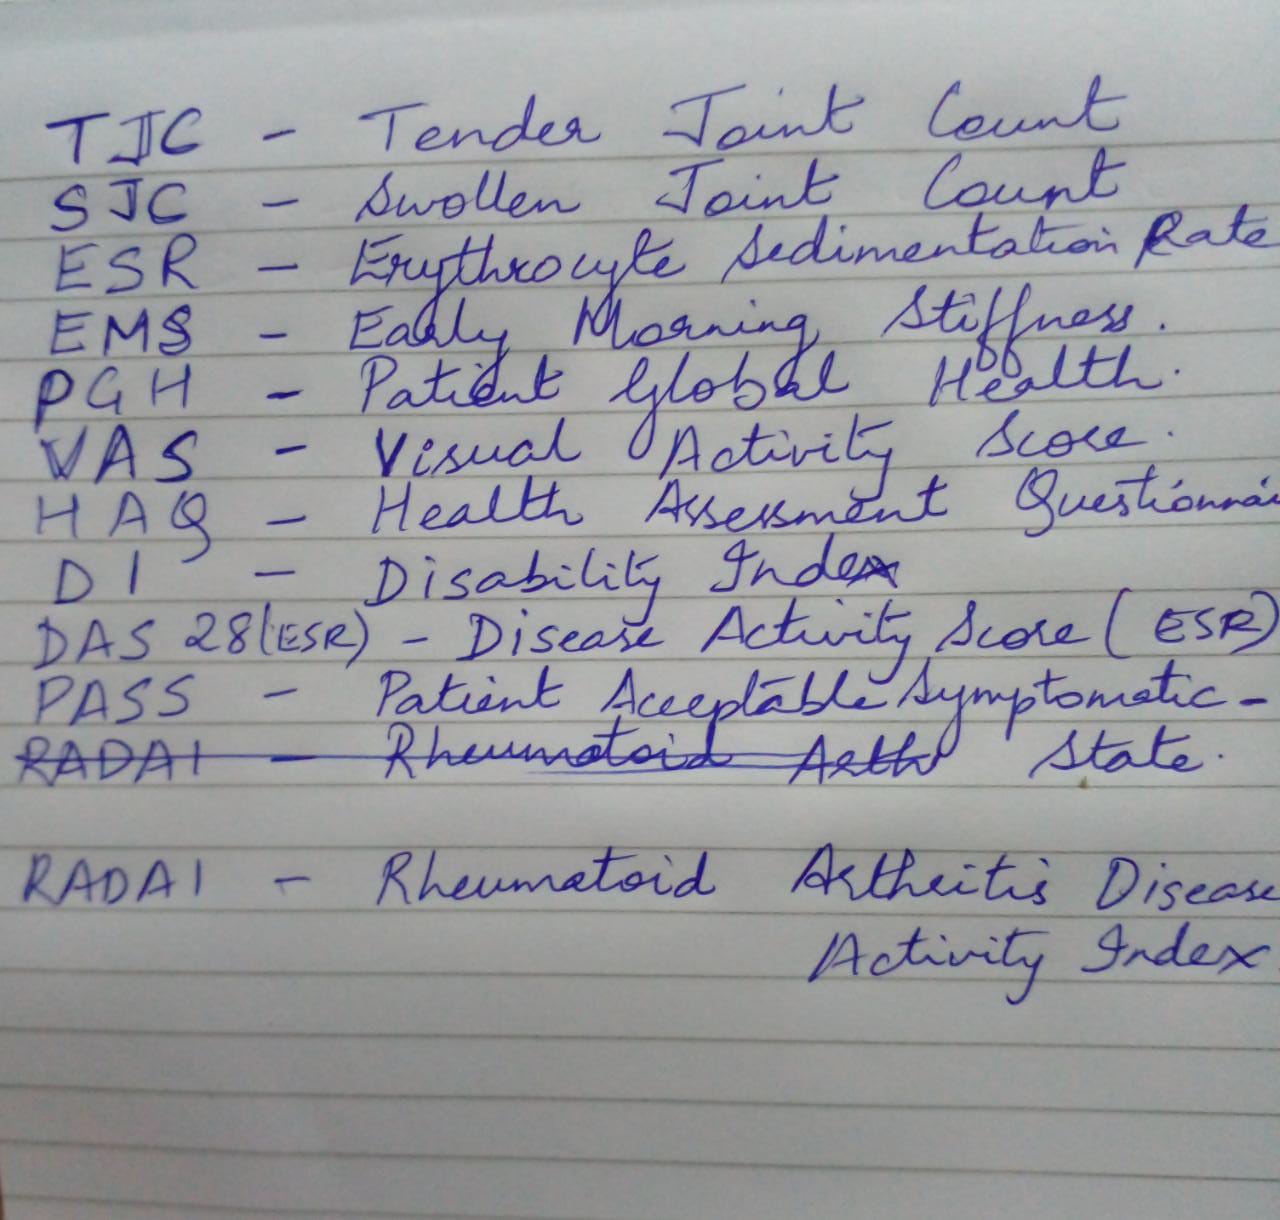 TJC - Tender Joint Count
SJC - Swollen Joint Count
ESR - Erythrocyte Sedimentation Rate
EMS - Early Morning Stiffness.
PGH - Patient Global Health.
VAS - Visual Activity Score.
HAQ - Health Assessment Questionnai
DI - Disability Index
DAS 28(ESR) - Disease Activity Score (ESR)
PASS - Patient Acceptable Symptomatic -
RADAI - Rheumatoid Arth State.
RADAI - Rheumatoid Arthritis Disease
Activity Index